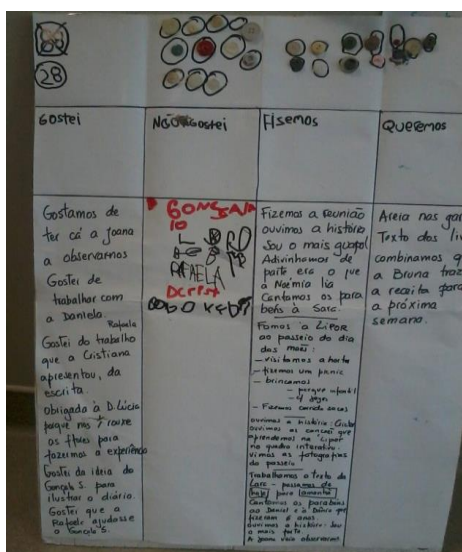 28
Gostei
Não Gostei
Fisemos
Queremos
Gostamos de
ter cá a Joana
a observarnos
Gostei de
trabalhar com
a Daniela.
Rafaela
Gostei do trabalho
que a Cristiana
apresentou, da
escrita.
Obrigado à D. Lúcia
porque nos trouxe
as flores para
fazermos a experiência
Gostei da ideia do
Gonçalo S. para
ilustrar o diário.
Gostei que a
Rafaela ajudasse
o Gonçalo S.
GONÇALO
10
RAFAELA
Fizemos a reunião
ouvimos a história
Sou o mais guapo!
Adivinhamos de
parte era o que
a Noémia lia
Cantamos os para
bens à Sara.
Fomos à Lipor
ao passeio do dia
das mães:
- visitamos a horta
- fizemos um picnic
- brincamos
- parque infantil
- c/ jogos
- Fizemos corrida sacos
ouvimos a história:
ouvimos as canções que
aprendemos na Lipor
no quadro interativo.
vimos as fotografias
do passeio
Trabalhamos o texto da
Lara - passamos de
hoje para amanhã
Cantamos os parabéns
ao Daniel e à
fizeram 6 anos.
ouvimos a história: Sou
o mais forte.
A Joana veio observarnos
Areia nas
Texto dos
combinamos
a Bruna
a receita para
a próxima
semana.